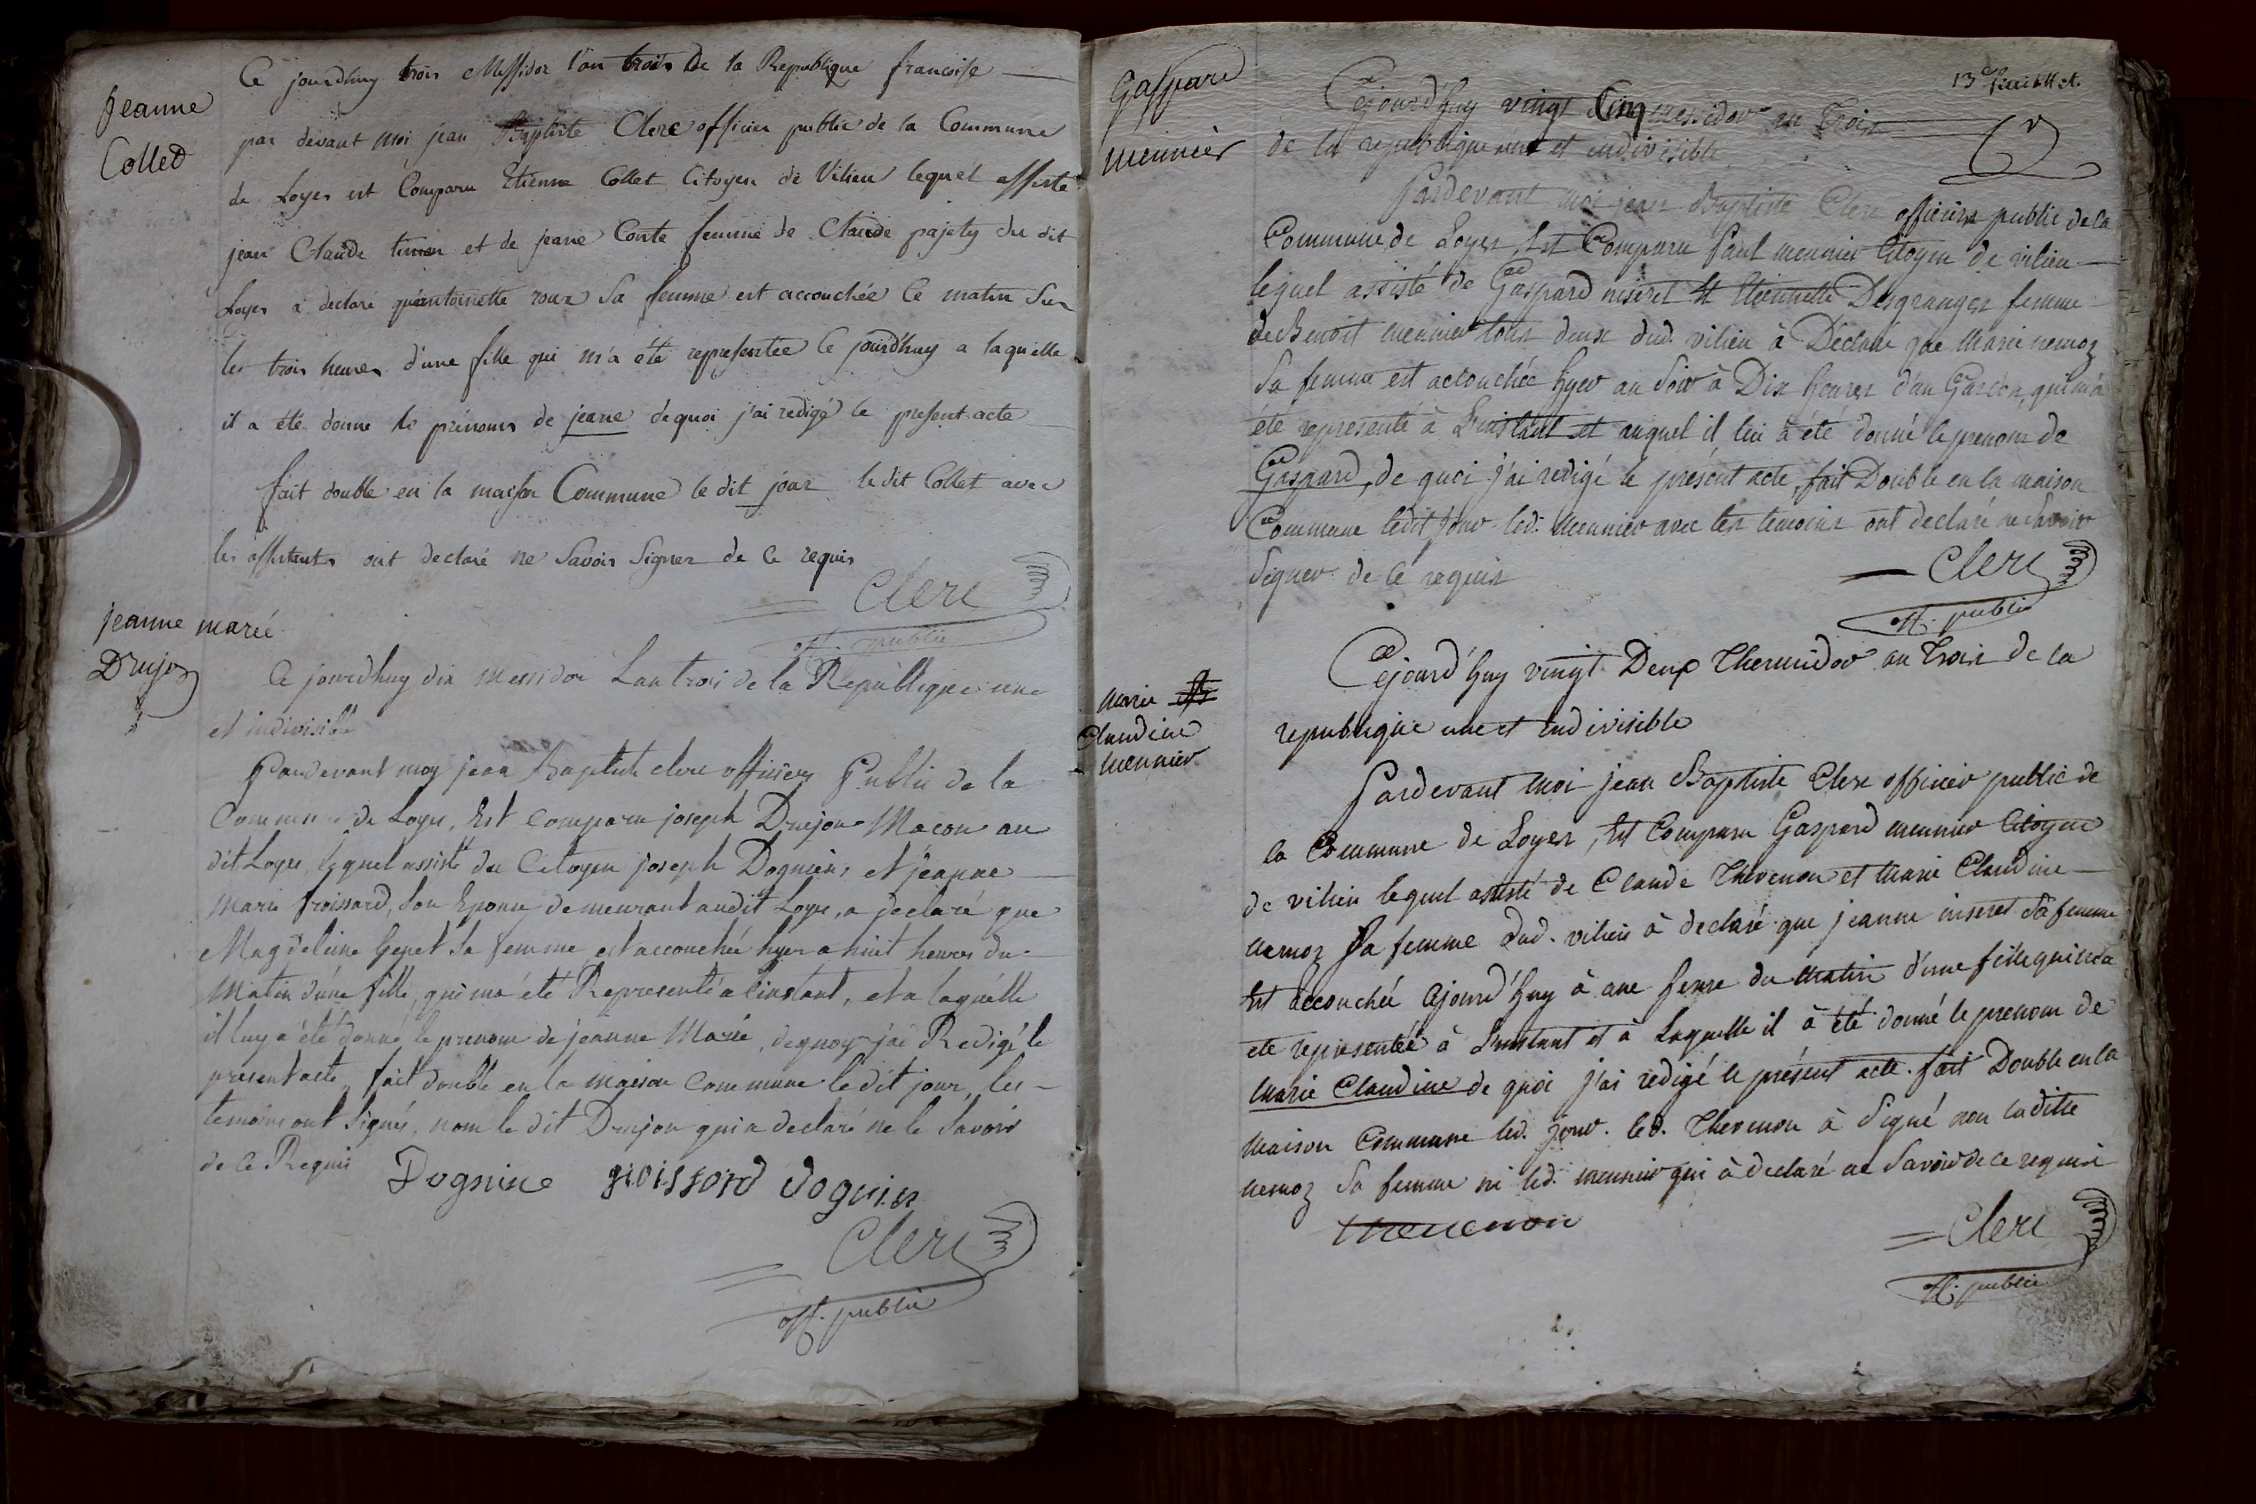 Jeanne
Collet
Ce jourdhuy trois Messidor l'an trois de la Republique francoise
par devant moi jean Baptiste Clerc officier public de la Commune
de Loyes est Comparu Etienne Collet Citoyen de Vilieu lequel assisté
jean Claude et de jeane Conte femme de Claude pajety du dit
Loyes a declaré qu'antoinette roux Sa femme est accouchée Ce matin Sur
les trois heures d'une fille qui m'a été representée Ce jourdhuy a laquelle
il a été donne le prénoms de jeane dequoi j'ai redigé le present acte
fait double en la maison Commune le dit jour le dit Collet avec
les assistants ont declaré ne Savoir Signer de Ce requis
Clerc
off. public
jeanne marie
Drujon
Ce jourdhuy dix messidor Lan trois de la Republique une
et indivisible
Pardevant moy jean Baptiste clerc officiers Public de la
Commune de Loyes, Est Comparu joseph Drujon Macon au
dit Loyes, Lequel assisté du Citoyen joseph Dognien, et jeanne
Marie froissard, Son Epouse demeurant audit Loyes, a declaré que
Magdeleine Genet Sa femme est accouchée hyer a huit heures du
Matin d'une fille, qui ma été Representé a l'instant, et a laquelle
il luy a été donné le prenom de jeanne Marie, dequoy j'ai Redigé le
present acte, fait double en la maison Commune le dit jour, les
temoins ont Signés, non le dit Drujon qui a declaré ne le Savoir
de Ce Requis
Dognine froissard dognin
Clerc
off. public
13 Juillet.
Gaspard
meunier
Cejourd'huy vingt Cinq messidor an Trois
de la republique une et indivisible
Pardevant moi jean Baptiste Clerc officier public de la
Commune de Loyes, Est Comparu Paul meunier Citoyen de vilieu
lequel assisté de Gaspard miseret Et Etiennette Desgranges femme
de Benoit meunier tous deux dud. vilieu à Declaré que Marie nemoz
Sa femme est accouchée hyer au Soir à Dix heures d'un Garcon, qui m'a
été representé à L'instant et auquel il lui à été donné le prenom de
Gaspard, de quoi j'ai redigé le présent acte, fait Double en la maison
Commune ledit jour led. meunier avec les temoins ont declaré ne Savoir
Signer de Ce requis
Clerc
off. public
marie
Claudine
meunier
Cejourd'huy vingt Deux Thermidor an Trois de la
republique une et indivisible
Pardevant moi jean Baptiste Clerc officier public de
la Commune de Loyes, Est Comparu Gaspard meunier Citoyen
de vilieu lequel assisté de Claude Thevenon et Marie Claudine
nemoz Sa femme dud. vilieu à declaré que jeanne miseret Sa femme
Est accouchée Cejourd'huy à une heure du matin d'une fille qui m'a
eté representéé à L'instant et à Laquelle il à été donné le prenom de
Marie Claudine de quoi j'ai redigé le présent acte. fait Double en la
maison Commune led. jour. led. Thevenon à Signé non laditte
nemoz Sa femme ni led. meunier qui à declaré ne Savoir de ce requis
thevenon
Clerc
off. public